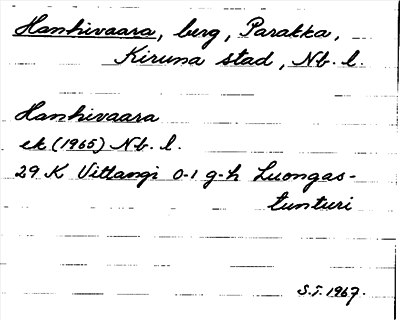 Hanhivaara, berg, Parakka,
Kiruna stad, Nb. l.
Hanhivaara
ek (1965) Nb. l.
29 K Vittangi 0-1 g-h Luongas-
tunturi
S.T. 1967.